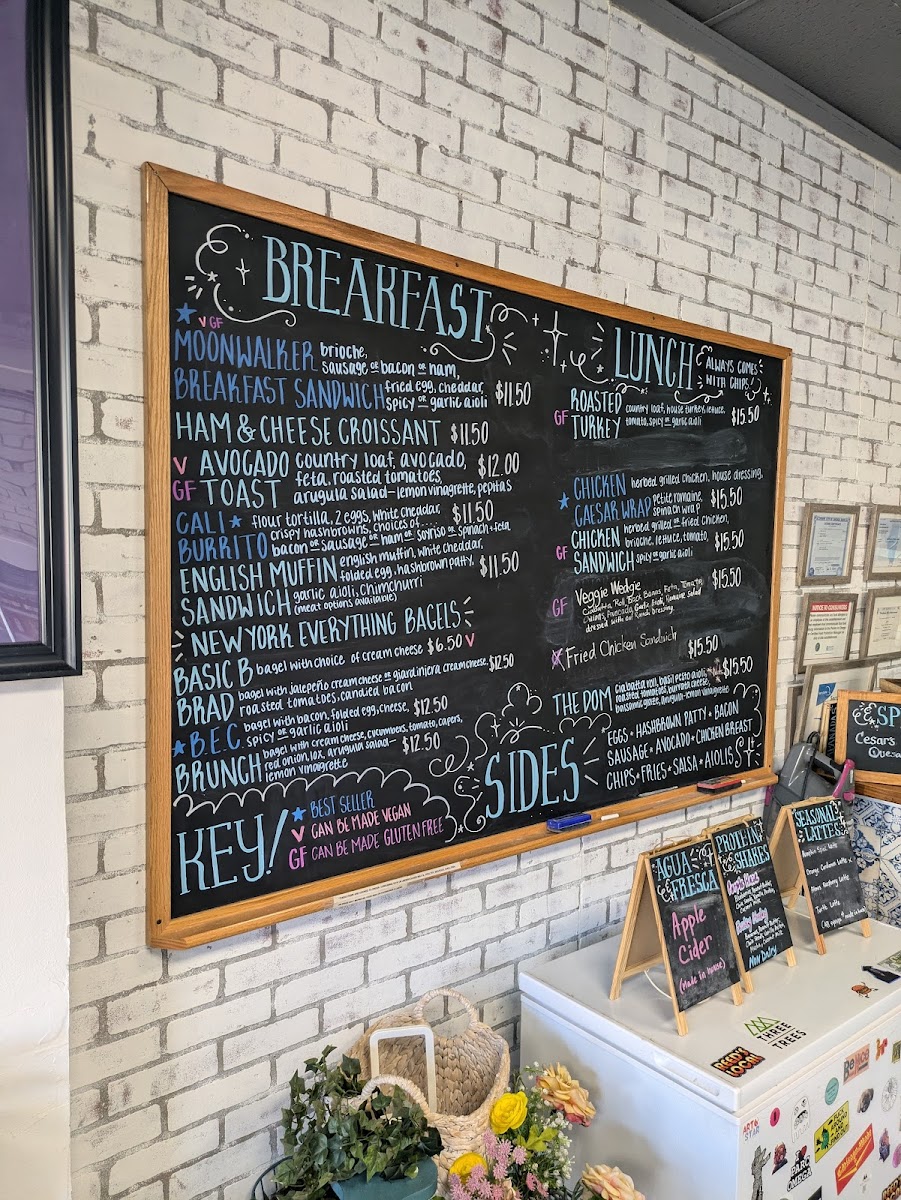 BREAKFAST
V GF
MOONWALKER brioche,
sausage or bacon or ham,
BREAKFAST SANDWICH fried egg, cheddar,
spicy or garlic aioli $11.50
HAM & CHEESE CROISSANT $11.50
V AVOCADO country loaf, avocado,
feta, roasted tomatoes, $12.00
GF TOAST arugula salad-lemon vinagrette, pepitas
CALI flour tortilla, 2 eggs, white cheddar, $11.50
crispy hashbrowns, choices of....
BURRITO bacon or sausage or ham or soyriso or spinach+feta
ENGLISH MUFFIN english muffin, white cheddar,
folded egg, hashbrown patty, $11.50
SANDWICH garlic aioli, chimchurri
(meat options available)
NEW YORK EVERYTHING BAGELS
BASIC B bagel with choice of cream cheese $6.50 V
BRAD bagel with jalepeño cream cheese or giardiniera cream cheese, $12.50
roasted tomatoes, candied bacon
B.E.C. bagel with bacon, folded egg, cheese, $12.50
spicy or garlic aioli
BRUNCH bagel with cream cheese, cucumbers, tomato, capers,
red onion, lox, arugula salad- $12.50
lemon vinagrette
KEY!
BEST SELLER
V CAN BE MADE VEGAN
GF CAN BE MADE GLUTEN FREE
LUNCH
ALWAYS COMES
WITH CHIPS!
GF ROASTED
TURKEY country loaf, house turkey, lettuce,
tomato, spicy or garlic aioli $15.50
CHICKEN herbed grilled chicken, house dressing,
CAESAR WRAP petite romaine,
spinach wrap $15.50
CHICKEN herbed grilled or fried chicken,
GF brioche, lettuce, tomato, $15.50
SANDWICH spicy or garlic aioli
GF Veggie Wedgie $15.50
Fried Chicken Sandwich $15.50
THE DOM ciabatta roll, basil pesto aioli, $15.50
roasted tomatoes, burrata cheese,
balsamic glaze, arugula-lemon vinagrette
SIDES
EGGS HASHBROWN PATTY BACON
SAUSAGE AVOCADO CHICKEN BREAST
CHIPS FRIES SALSA AIOLIS
AGUA
FRESCA
Apple
Cider
(Made in house)
PROTEIN
SHAKES
Non Dairy
SEASONAL
LATTES
Pumpkin Spice Latte
Orange Cardamom Latte
Raspberry Latte
Latte
NOTICE
Cesars
THREE
TREES